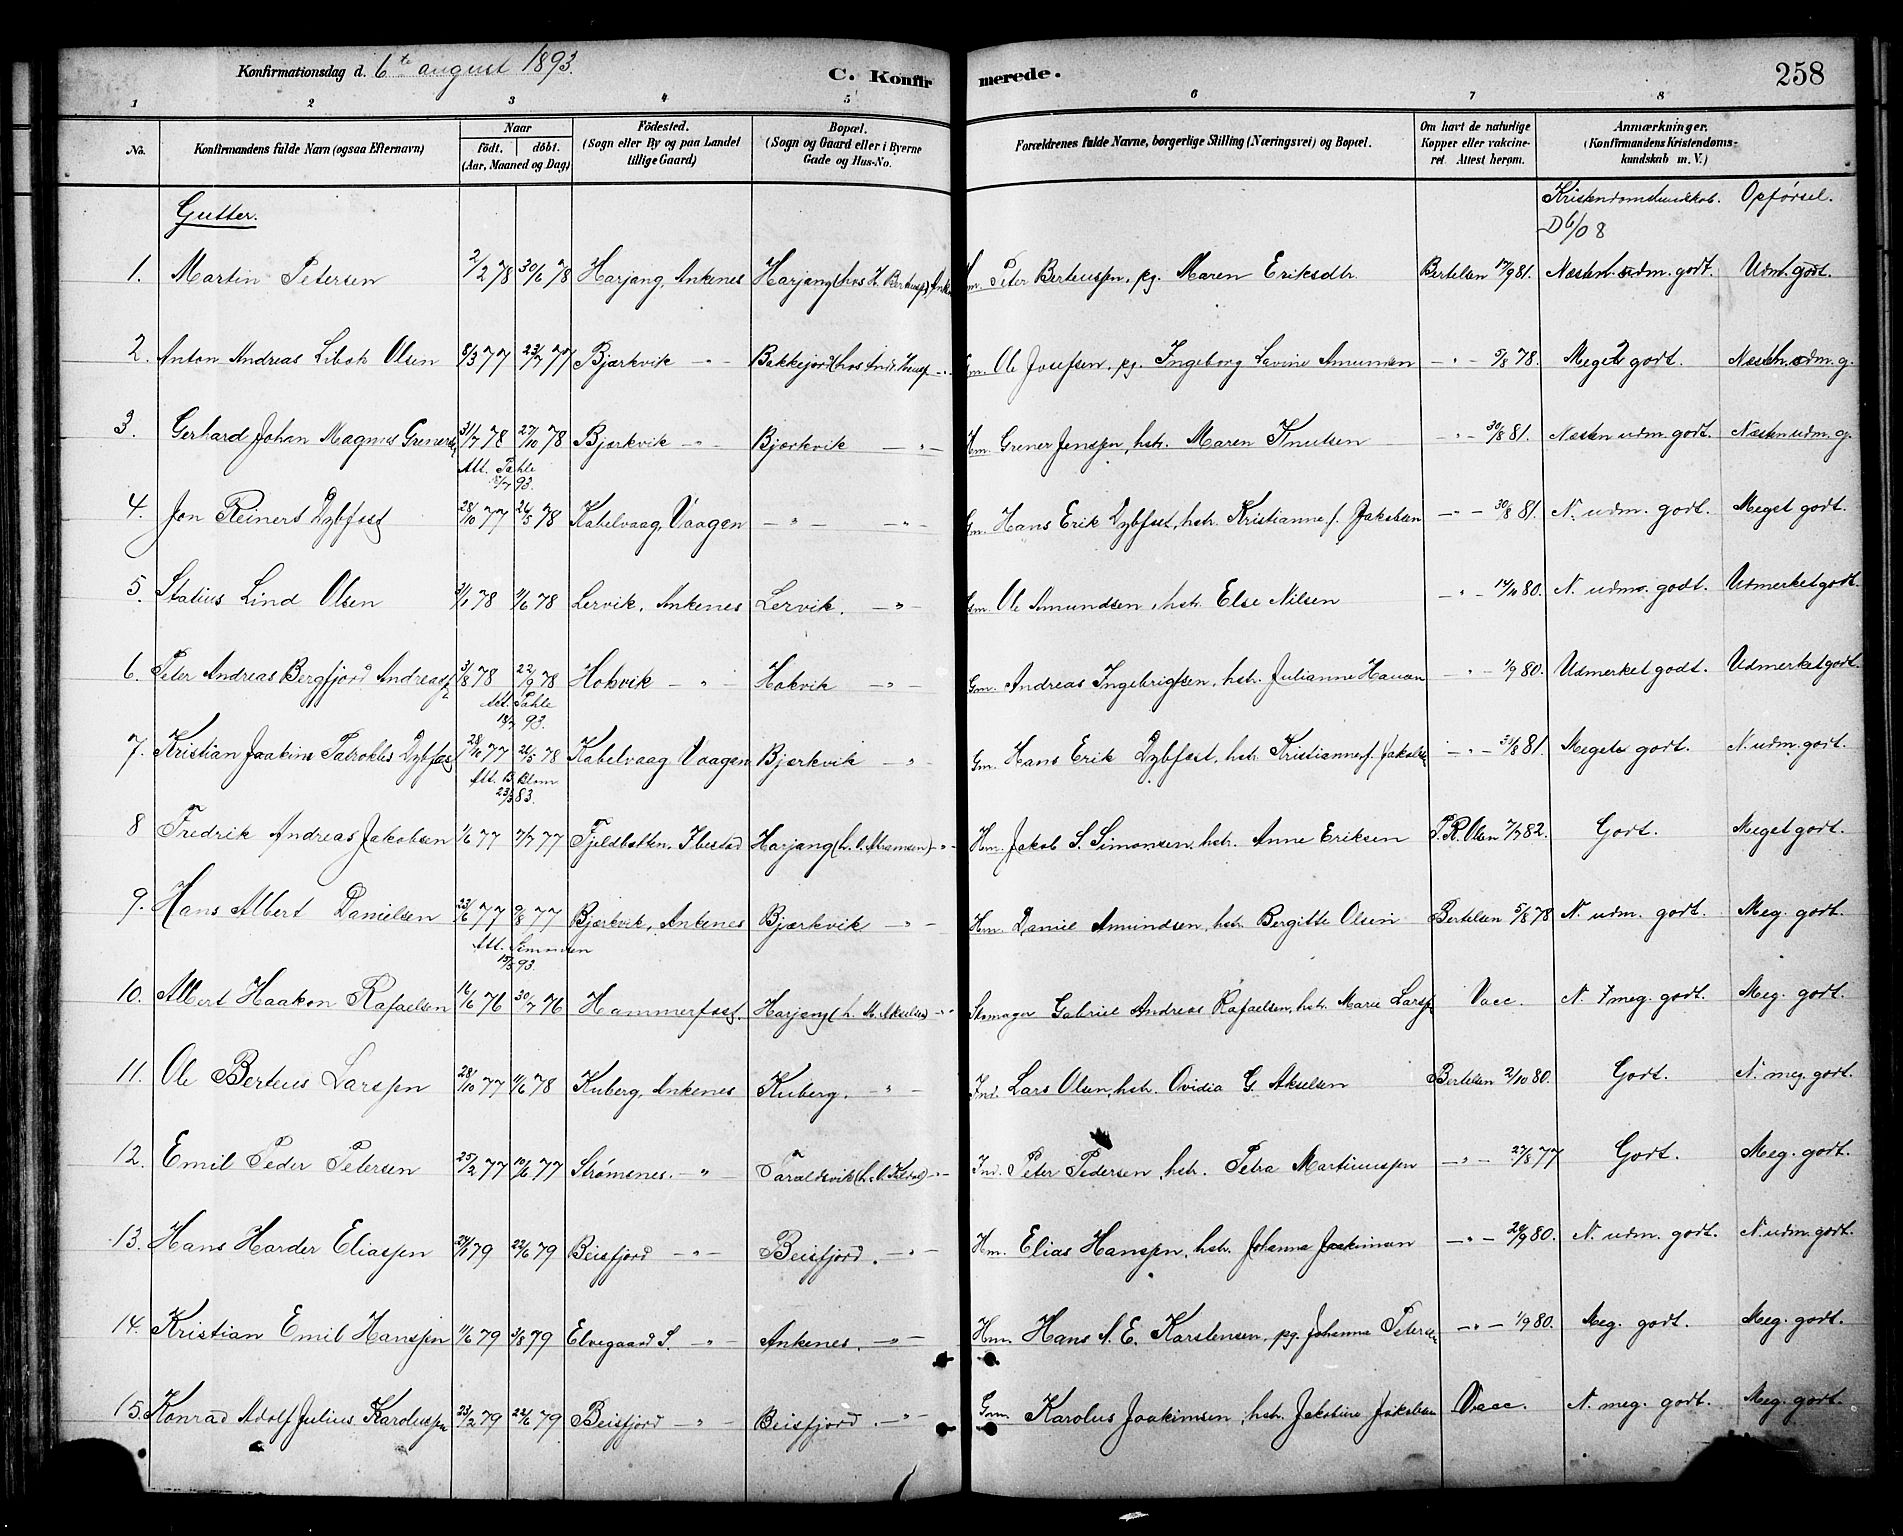 Konfirmationsdag d. 6te august 1893.
C. Konfirmerede.
258
1 2 3 4 5 6 7 8
No.
Konfirmandens fulde Navn (ogsaa Efternavn)
Naar
födt. döbt.
(Aar, Maaned og Dag)
Födested.
(Sogn eller By og paa Landet
tillige Gaard)
Bopæl.
(Sogn og Gaard eller i Byerne
Gade og Hus-No.
Forældrenes fulde Navne, borgerlige Stilling (Næringsvei) og Bopæl.
Om havt de naturlige
Kopper eller vakcine-
ret Attest herom.
Anmærkninger.
(Konfirmandens Kristendoms-
kundskab m. V.)
Gutter.
Kristendomskundskab. Opførsel.
D 6/08
1. Martin Petersen 2/2 78 30/6 78 Harjang, Ankenes Harjang (hos H. Berteussen) Hm. Peter Berteussen, pg. Maren Eriksdtr. Bertelsen 17/9 81. Næsten udm. godt. Udm. godt.
2. Anton Andreas Libok Olsen 8/3 77 23/7 77 Bjærkvik -"- Bakkejord (hos Andr. -"- Gm. Ole Josefsen, pg. Ingeborg Lavine Amunsen -"- 5/8 78. Meget godt. Næsten udm. g.
3. Gerhard Johan Magnus Grenersen 31/7 78 27/10 78 Bjærkvik -"- Bjærkvik -"- Hm. Grener Jenssen, hstr. Maren Knutsen -"- 30/8 81. Næsten udm. godt. Næsten udm. g.
Att. Pahle
93.
4. Jon Reinert Dybfest 28/10 77 26/5 78 Kabelvaag, Vaagen -"- -"- Gm. Hans Erik Dybfest, hstr. Kristianne f. Jakobsen -"- 30/8 81. N. udm. godt. Meget godt.
5. Statius Lind Olsen 3/1 78 9/6 78 Lervik, Ankenes Lervik. -"- Gm. Ole Amundsen, hstr. Else Nilsen -"- 14/10 80. N. udm. godt. Udmerket godt.
6. Peter Andreas Bergfjord Andreassen 3/8 78 22/9 78 Hokvik -"- Hokvik -"- Gm. Andreas Ingebrigtsen, hstr. Julianne Hauan -"- 1/9 80. Udmerket godt. Udmerket godt.
Att. Pahle
93.
7. Kristian Joakim Patroklus Dybfest 28/10 77 26/5 78 Kabelvaag Vaagen Bjærkvik -"- Gm. Hans Erik Dybfest, hstr. Kristianne f. Jakobsen -"- 31/8 81. Meget godt. N. udm. godt.
Att. B. Blom
23/3 83.
8 Fredrik Andreas Jakobsen 1/6 77 7/7 77 Fjeldbotten, Ibestad Harjang (h. O. Abramsen) -"- Hm. Jakob S. Simonsen, hstr. Anne Eriksen P. R. Olsen 7/7 82. Godt. Meget godt.
9. Hans Albert Danielsen 23/6 77 9/8 77 Bjærkvik, Ankenes Bjærkvik -"- Hm. Daniel Amundsen, hstr. Bergitte Olsen Bertelsen 5/8 78 N. udm. godt. Meg. godt.
Att.
15/5 93.
10. Albert Haakon Rafaelsen 16/6 76 30/7 76 Hammerfest. Harjang (h. M. Akselsen) -"- Skomager Gabriel Andreas Rafaelsen, hstr. Marie Larssen Vacc. N. meg. godt. Meg. godt.
11. Ole Berteus Larssen 28/10 77 9/6 78 Kuberg, Ankenes Kuberg. -"- Ind. Lars Olsen, hstr. Ovidia G. Akselsen Bertelsen 2/10 80. Godt. N. meg. godt.
12. Emil Peder Petersen 25/2 77 10/6 77 Strømsnes. -"- Taraldsvik -"- Ind. Peter Pedersen, hstr. Petra Martinussen -"- 27/8 77 Godt. Meg. godt.
13. Hans Harder Eliassen 24/1 79 22/6 79 Beisfjord -"- Beisfjord. -"- Hm. Elias Hanssen, hstr. Johanna Joakimsen -"- 29/9 80. N. udm. godt. N. udm. godt.
14. Kristian Emil Hanssen 11/6 79 3/8 79 Elvegaard S. -"- Ankenes. -"- Hm. Hans A. E. Karstensen, pg. Johanna Petersen -"- 1/9 80. Meg. godt. Meg. godt.
15. Konrad Adolf Julius Karolussen 23/2 79 22/6 79 Beisfjord -"- Beisfjord. -"- Gm. Karolus Joakimsen, hstr. Jakobine Jakobsen Vacc. N. meg. godt. Meg. godt.